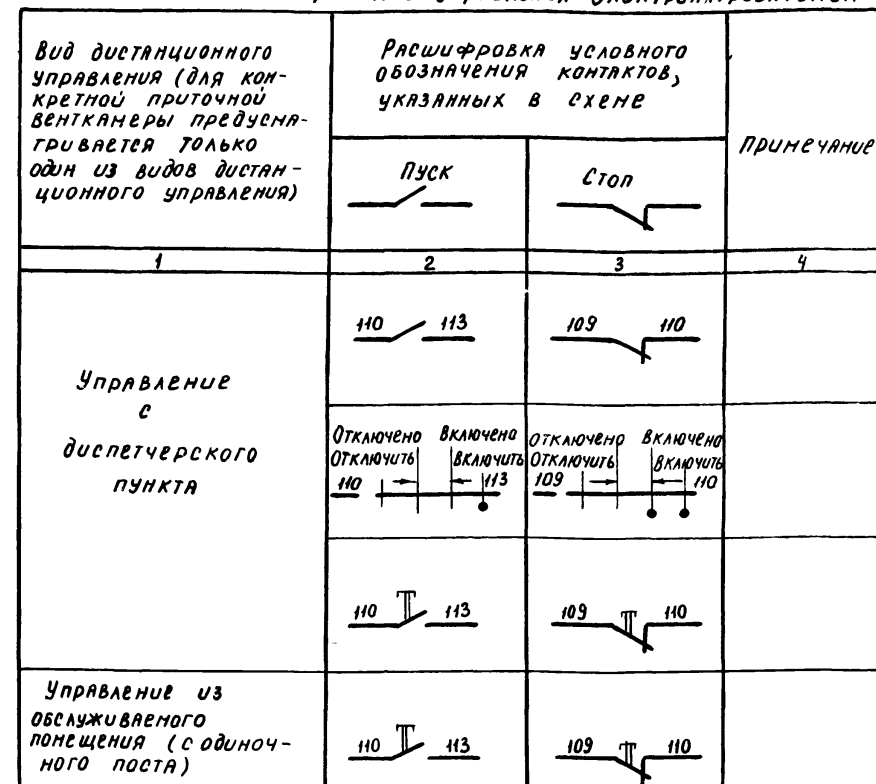 Вид дистанционного
управления (для кон-
кретной приточной
венткамеры предусма-
тривается только
один из видов дистан-
ционного управления)
Расшифровка условного
обозначения контактов,
указанных в схеме
Примечание
Пуск
Стоп
1 2 3 4
Управление
с
диспетчерского
пункта
110 113
109 110
Отключено Включена
Отключить Включить
110 113
Отключено Включено
Отключить Включить
109 110
110 113
109 110
Управление из
обслуживаемого
помещения (с одиноч-
ного поста)
110 113
109 110